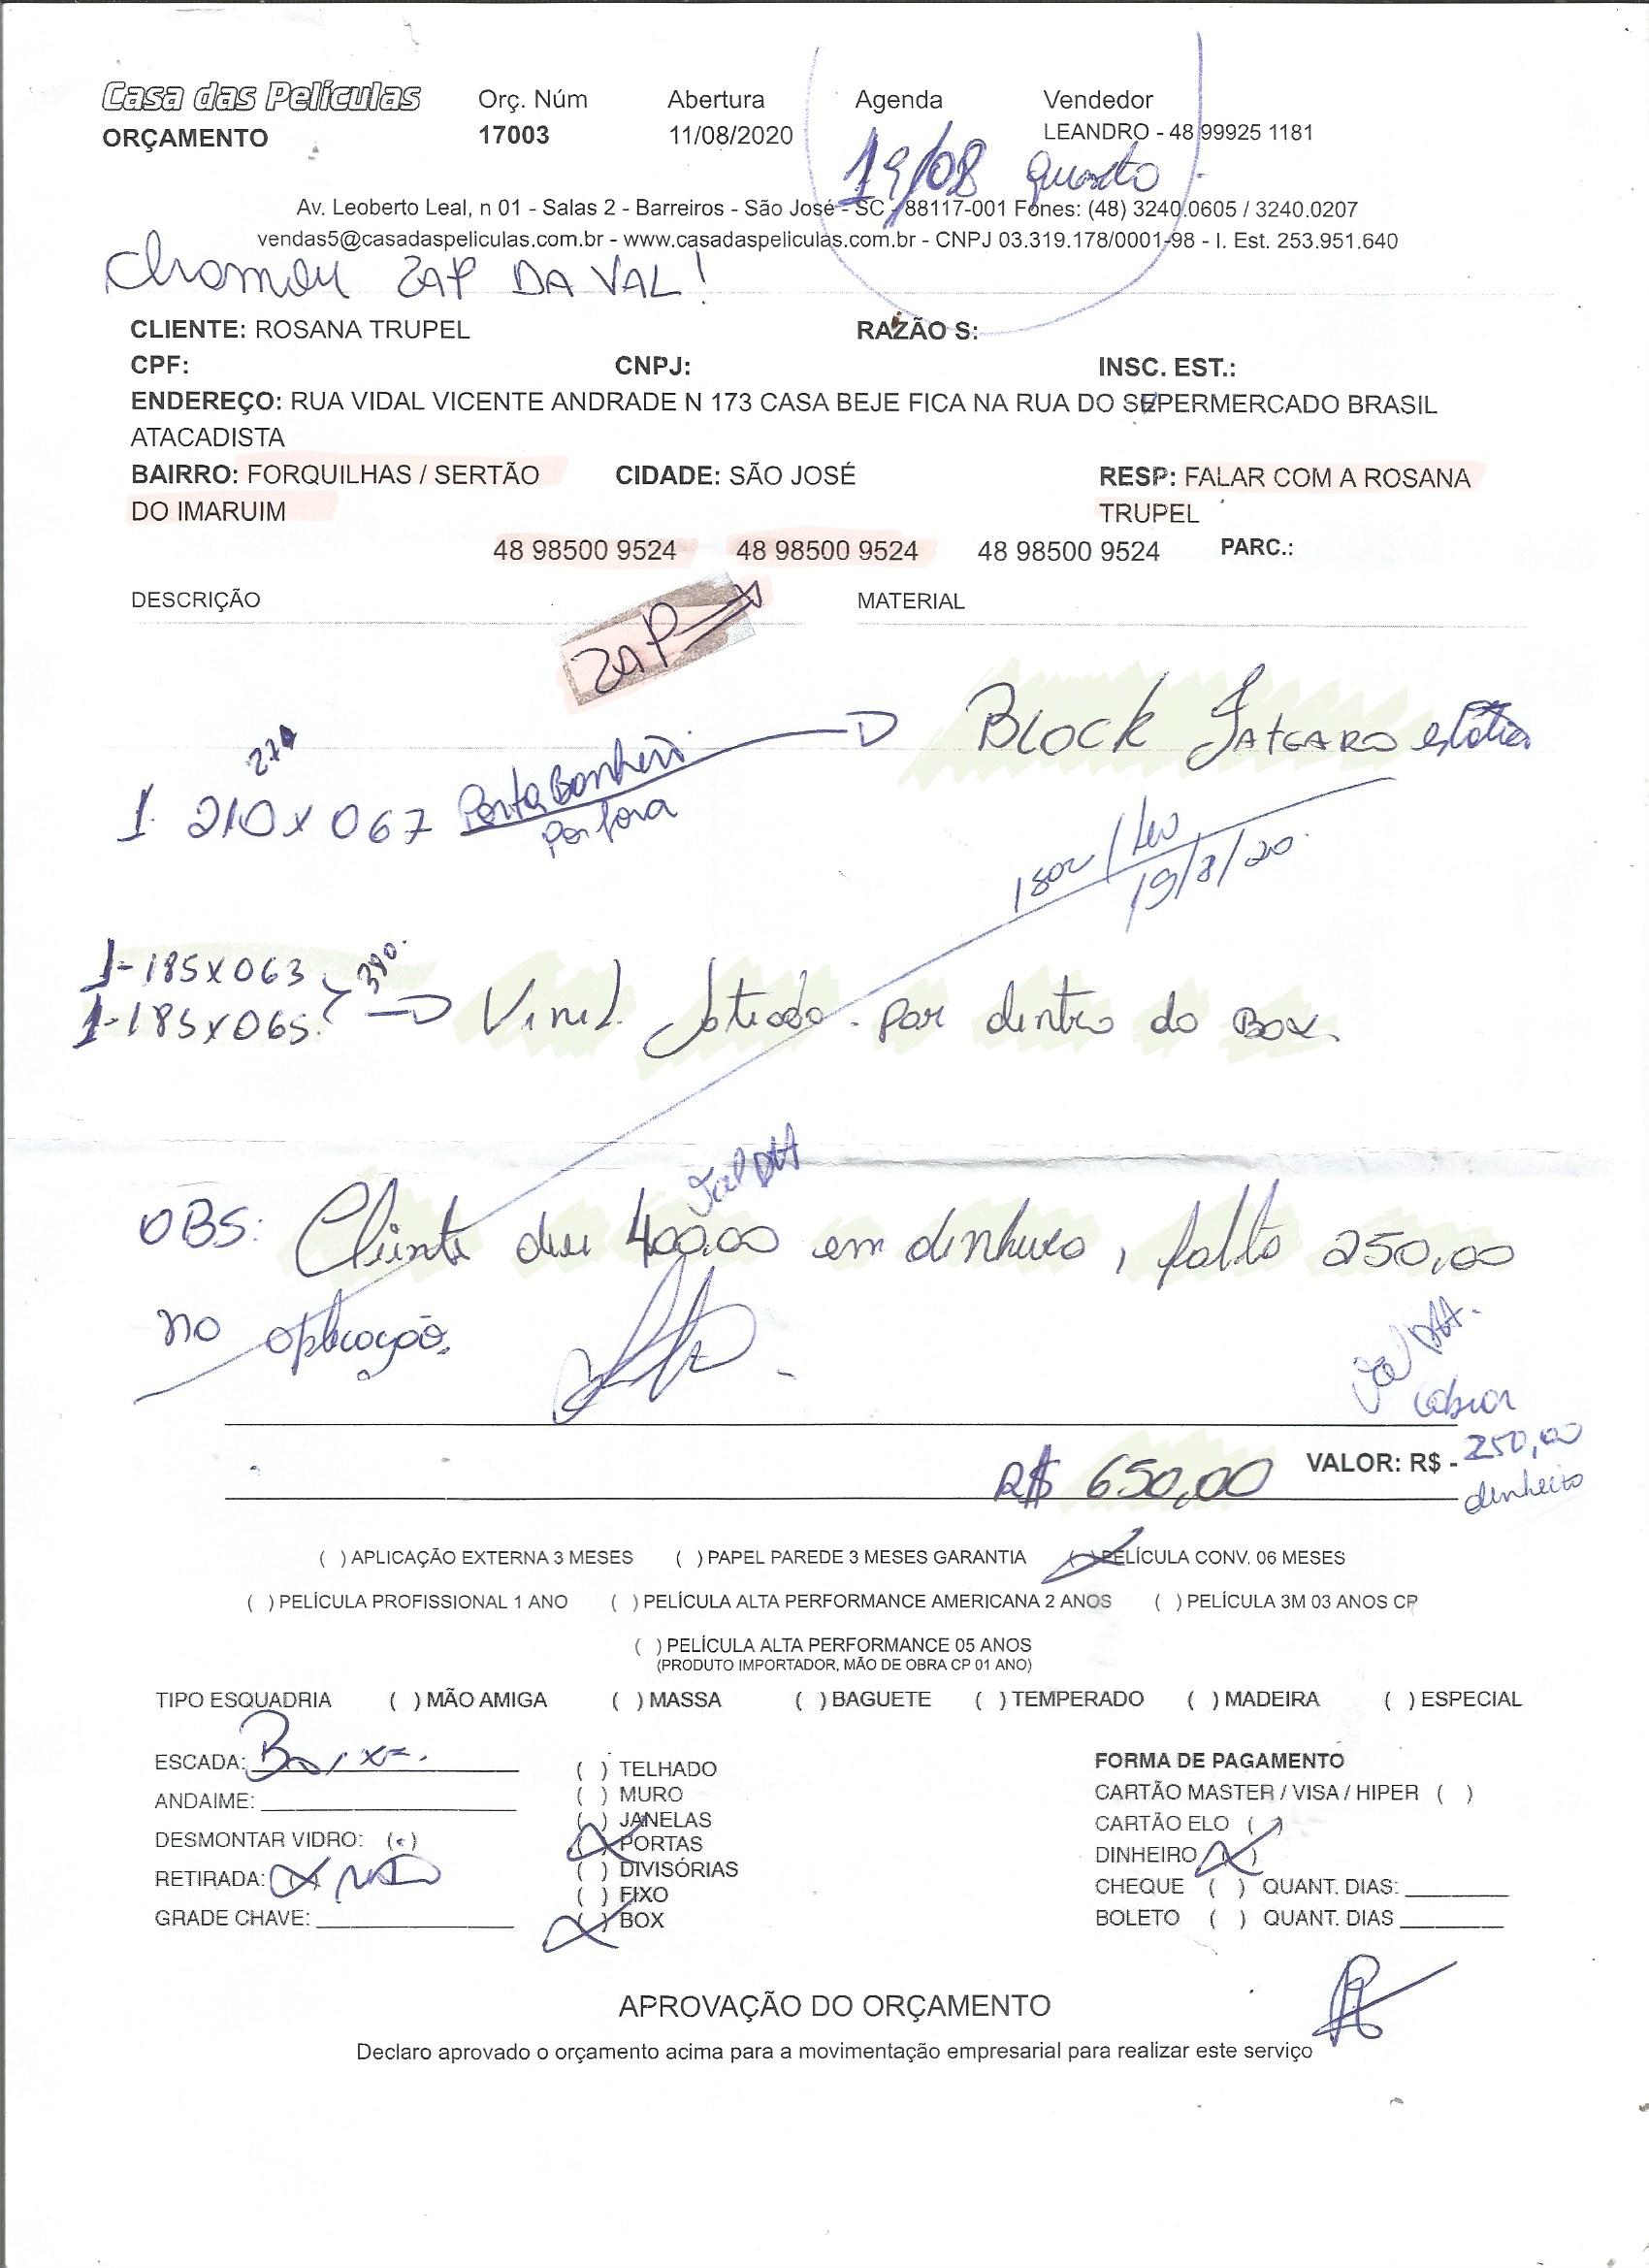 Casa das Películas Orç. Núm Abertura Agenda Vendedor
ORÇAMENTO 17003 11/08/2020 LEANDRO - 48 99925 1181
19/08 quarta
Av. Leoberto Leal, n 01 - Salas 2 - Barreiros - São José - SC - 88117-001 Fones: (48) 3240.0605 / 3240.0207
vendas5@casadaspeliculas.com.br - www.casadaspeliculas.com.br - CNPJ 03.319.178/0001-98 - I. Est. 253.951.640
Chamou ZAP DA VAL!
CLIENTE: ROSANA TRUPEL RAZÃO S:
CPF: CNPJ: INSC. EST.:
ENDEREÇO: RUA VIDAL VICENTE ANDRADE N 173 CASA BEJE FICA NA RUA DO SEPERMERCADO BRASIL
ATACADISTA
BAIRRO: FORQUILHAS / SERTÃO CIDADE: SÃO JOSÉ RESP: FALAR COM A ROSANA
DO IMARUIM TRUPEL
48 98500 9524 48 98500 9524 48 98500 9524 PARC.:
DESCRIÇÃO MATERIAL
ZAP
270 Block
1 210 x 067 Porta Banheiro
Por fora
19/8/20
1-185x063 380
1-185x065 Vinil Jateado. Por dentro do Box.
OBS: Cliente deu 400.00 em dinheiro, falta 250,00
na aplicação.
cobrar
R$ 650,00 VALOR: R$ - 250,00
dinheiro
( ) APLICAÇÃO EXTERNA 3 MESES ( ) PAPEL PAREDE 3 MESES GARANTIA ( ) PELÍCULA CONV. 06 MESES
( ) PELÍCULA PROFISSIONAL 1 ANO ( ) PELÍCULA ALTA PERFORMANCE AMERICANA 2 ANOS ( ) PELÍCULA 3M 03 ANOS CP
( ) PELÍCULA ALTA PERFORMANCE 05 ANOS
(PRODUTO IMPORTADOR, MÃO DE OBRA CP 01 ANO)
TIPO ESQUADRIA ( ) MÃO AMIGA ( ) MASSA ( ) BAGUETE ( ) TEMPERADO ( ) MADEIRA ( ) ESPECIAL
ESCADA: Baixa.
ANDAIME:
DESMONTAR VIDRO: ( )
RETIRADA: (X) NÃO
GRADE CHAVE:
( ) TELHADO
( ) MURO
( ) JANELAS
(X) PORTAS
( ) DIVISÓRIAS
( ) FIXO
(X) BOX
FORMA DE PAGAMENTO
CARTÃO MASTER / VISA / HIPER ( )
CARTÃO ELO ( )
DINHEIRO (X)
CHEQUE ( ) QUANT. DIAS:
BOLETO ( ) QUANT. DIAS
APROVAÇÃO DO ORÇAMENTO
Declaro aprovado o orçamento acima para a movimentação empresarial para realizar este serviço